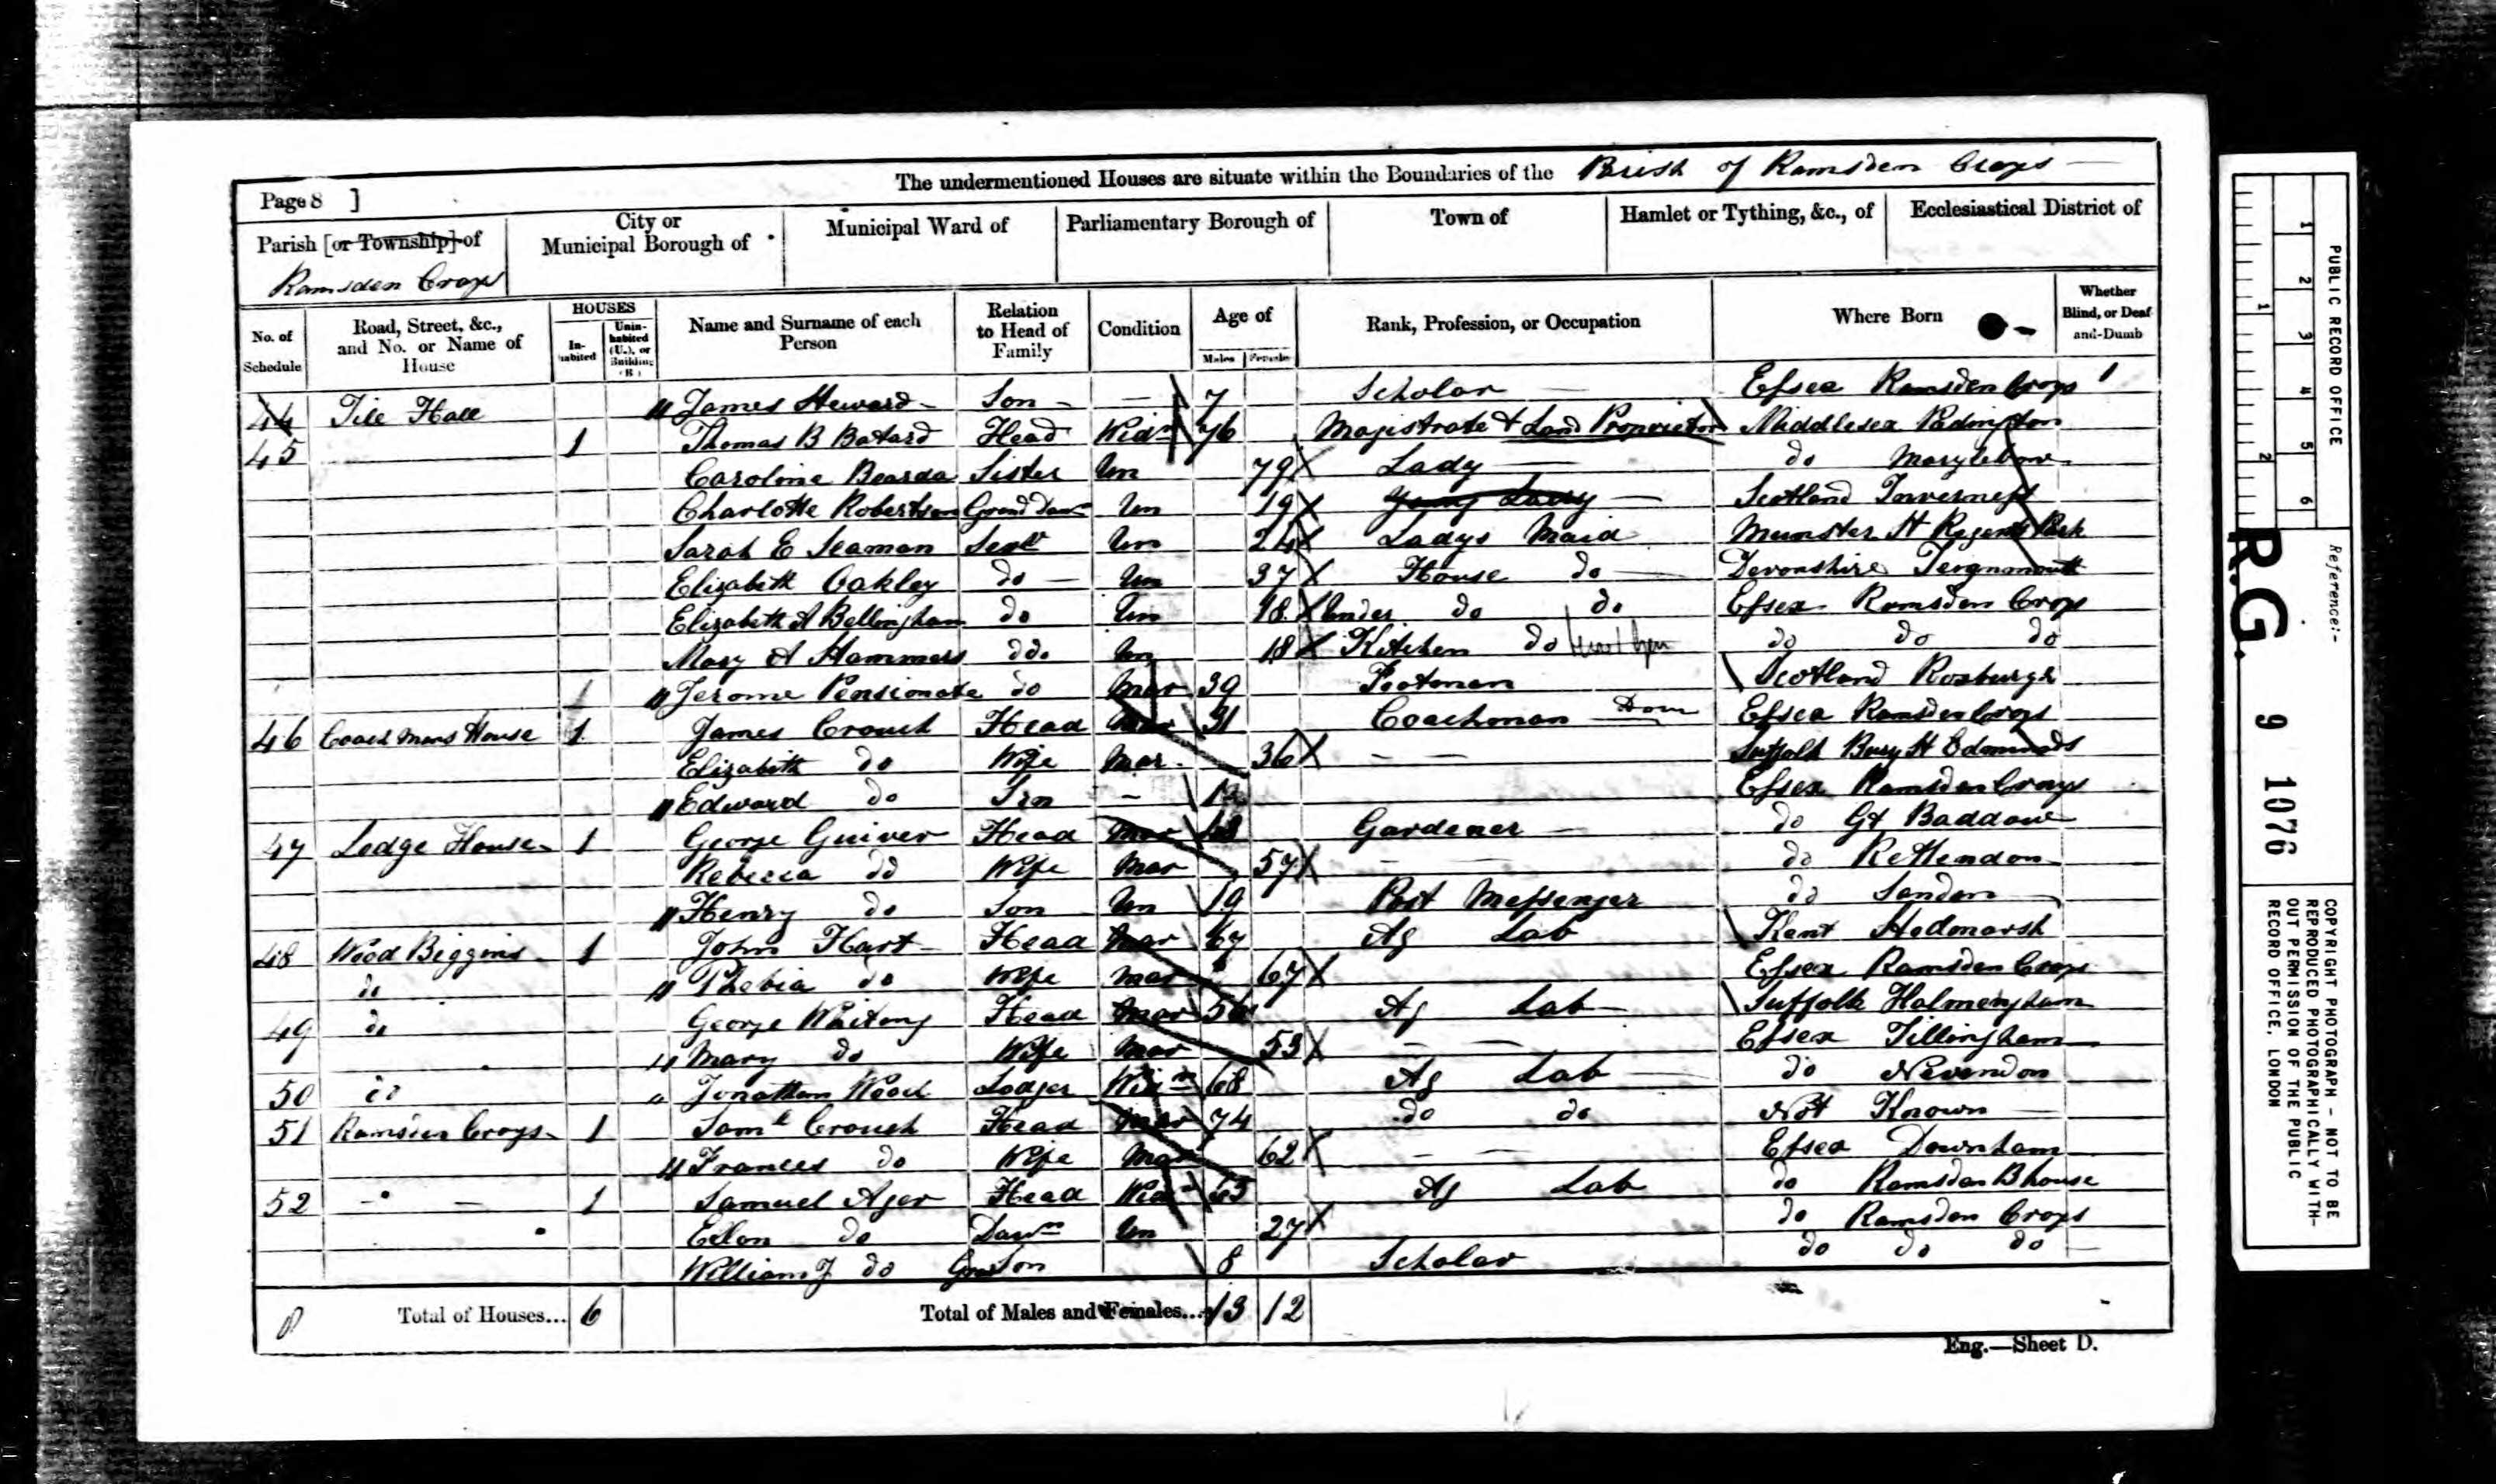 The undermentioned Houses are situate within the Boundaries of the Parish of Ramsden Crays
Page 8 ]
Parish [or Township] of
Ramsden Crays
City or
Municipal Borough of
Municipal Ward of
Parliamentary Borough of
Town of
Hamlet or Tything, &c., of
Ecclesiastical District of
No. of Schedule
Road, Street, &c., and No. or Name of House
HOUSES
In-habited
Unin-habited (U.), or Building (B.)
Name and Surname of each Person
Relation to Head of Family
Condition
Age of
Males
Females
Rank, Profession, or Occupation
Where Born
Whether Blind, or Deaf-and-Dumb
44 Tile Hall James Steward Son — 7 Scholar Essex Ramsden Crays
45 1 Thomas B Batard Head Widr 76 Magistrate & Land Proprietor Middlesex Padington
Caroline Sister Un 79 Lady do Marylebone
Charlotte Robertson Grand Daur Un 19 Young Lady Scotland Inverness
Sarah E Seaman Servt Un 24 Ladys Maid Munster St Regents Park
Elizabeth Oakley do Un 37 House do Devonshire Teignmouth
Elizabeth A Bellingham do Un 18 Under do do Essex Ramsden Crays
Mary A Hammers do Un 18 Kitchen do do do do
1 Jerome Pensionate do Mar 39 Footman Scotland Roxburgh
46 Coach Mans House 1 James Crouch Head Mar 31 Coachman Dom Essex Ramsden Crays
Elizabeth do Wife Mar 36 — — Suffolk Bury St Edmunds
Edward do Son — Essex Ramsden Crays
47 Lodge House 1 George Guiver Head Mar Gardener do Gt Baddow
Rebecca do Wife Mar 57 — — do Rettendon
Henry do Son Un 19 Post Messenger do Sandon
48 Wood Biggins 1 John Hart Head Mar 67 Ag Lab Kent Hodmarsh
do Phebia do Wife Mar 67 Essex Ramsden Crays
49 do George Whiteing Head Mar 56 Ag Lab Suffolk
Mary do Wife Mar 53 — — Essex Tillingham
50 do Jonathan Wood Lodger Widr 68 Ag Lab do Nevendon
51 Ramsden Crays 1 Saml Crouch Head Mar 74 do do Not Known
Frances do Wife Mar 62 — — Essex Downham
52 — 1 Samuel Ager Head Widr 65 Ag Lab do Ramsden B house
Ellen do Daur Un 27 do Ramsden Crays
William J do GranSon 8 Scholar do do do
Total of Houses... 6
Total of Males and Females... 13 12
Eng.—Sheet D.
PUBLIC RECORD OFFICE
1 2 3 4 5 6
1 2
Reference:-
R.G. 9 1076
COPYRIGHT PHOTOGRAPH - NOT TO BE
REPRODUCED PHOTOGRAPHICALLY WITH-
OUT PERMISSION OF THE PUBLIC
RECORD OFFICE, LONDON